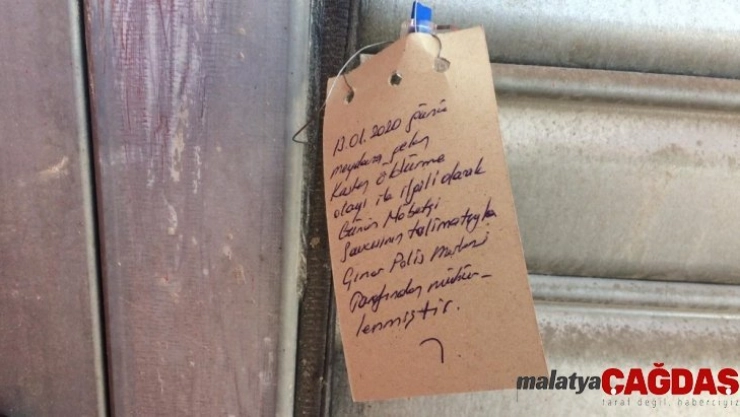 13.01.2020 günü
meydana gelen
Kasten öldürme
olayı ile ilgili olarak
Günün Nöbetçi
Savcısının talimatıyla
Çınar Polis Merkezi
Tarafından mühür-
lenmiştir.
malatyaÇAĞDAŞ
taraf değil, haberciyiz